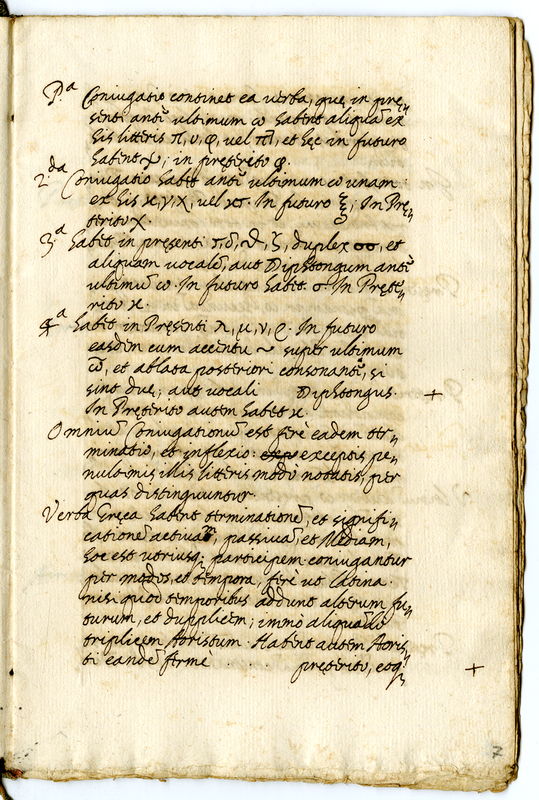 P.ª Coniugatio continet ea verba, quę in prę„
senti antẽ ultimum ω habent aliquã ex
his litteris π, υ, φ, vel πτ, et hęc in futuro
habent ψ; in pręterito φ.
2.da Coniugatio habet antẽ ultimum ω unam
ex his κ, γ, χ, vel κτ. In futuro ξ; In Prę„
terito χ.
3.ª habet in pręsenti τ, δ, θ, ζ, duplex σσ, et
aliquam vocalẽ, aut Diphtongum antẽ
ultimũ ω. In futuro habet σ. In Pręte„
rito κ.
4.ª habet in Pręsenti λ, μ, ν, ρ. In futuro
easdem cum accentu ~ super ultimum
ω̃, et ablata posteriori consonanti, si
sint duę; aut vocali Diphtongus. +
In Pręterito autem habet κ.
Omniũ Coniugationũ est ferè eadem ter„
minatio, et inflexio: exceptis pe„
nultimis illis litteris modò notatis, per
quas distinguuntur.
Verba Gręca habent terminationẽ, et signifi„
cationẽ activam, passivã, et Mediam,
hoc est utriusq; participem coniugantur
per modos, et tempora, ferè ut latina.
nisi quod temporibus addunt alterum fu„
turum, et duplicem; immò aliquãdo
triplicem Aoristum. Habent autem Aoris„
ti eandẽ fermè . . . . pręterito, eoq; +